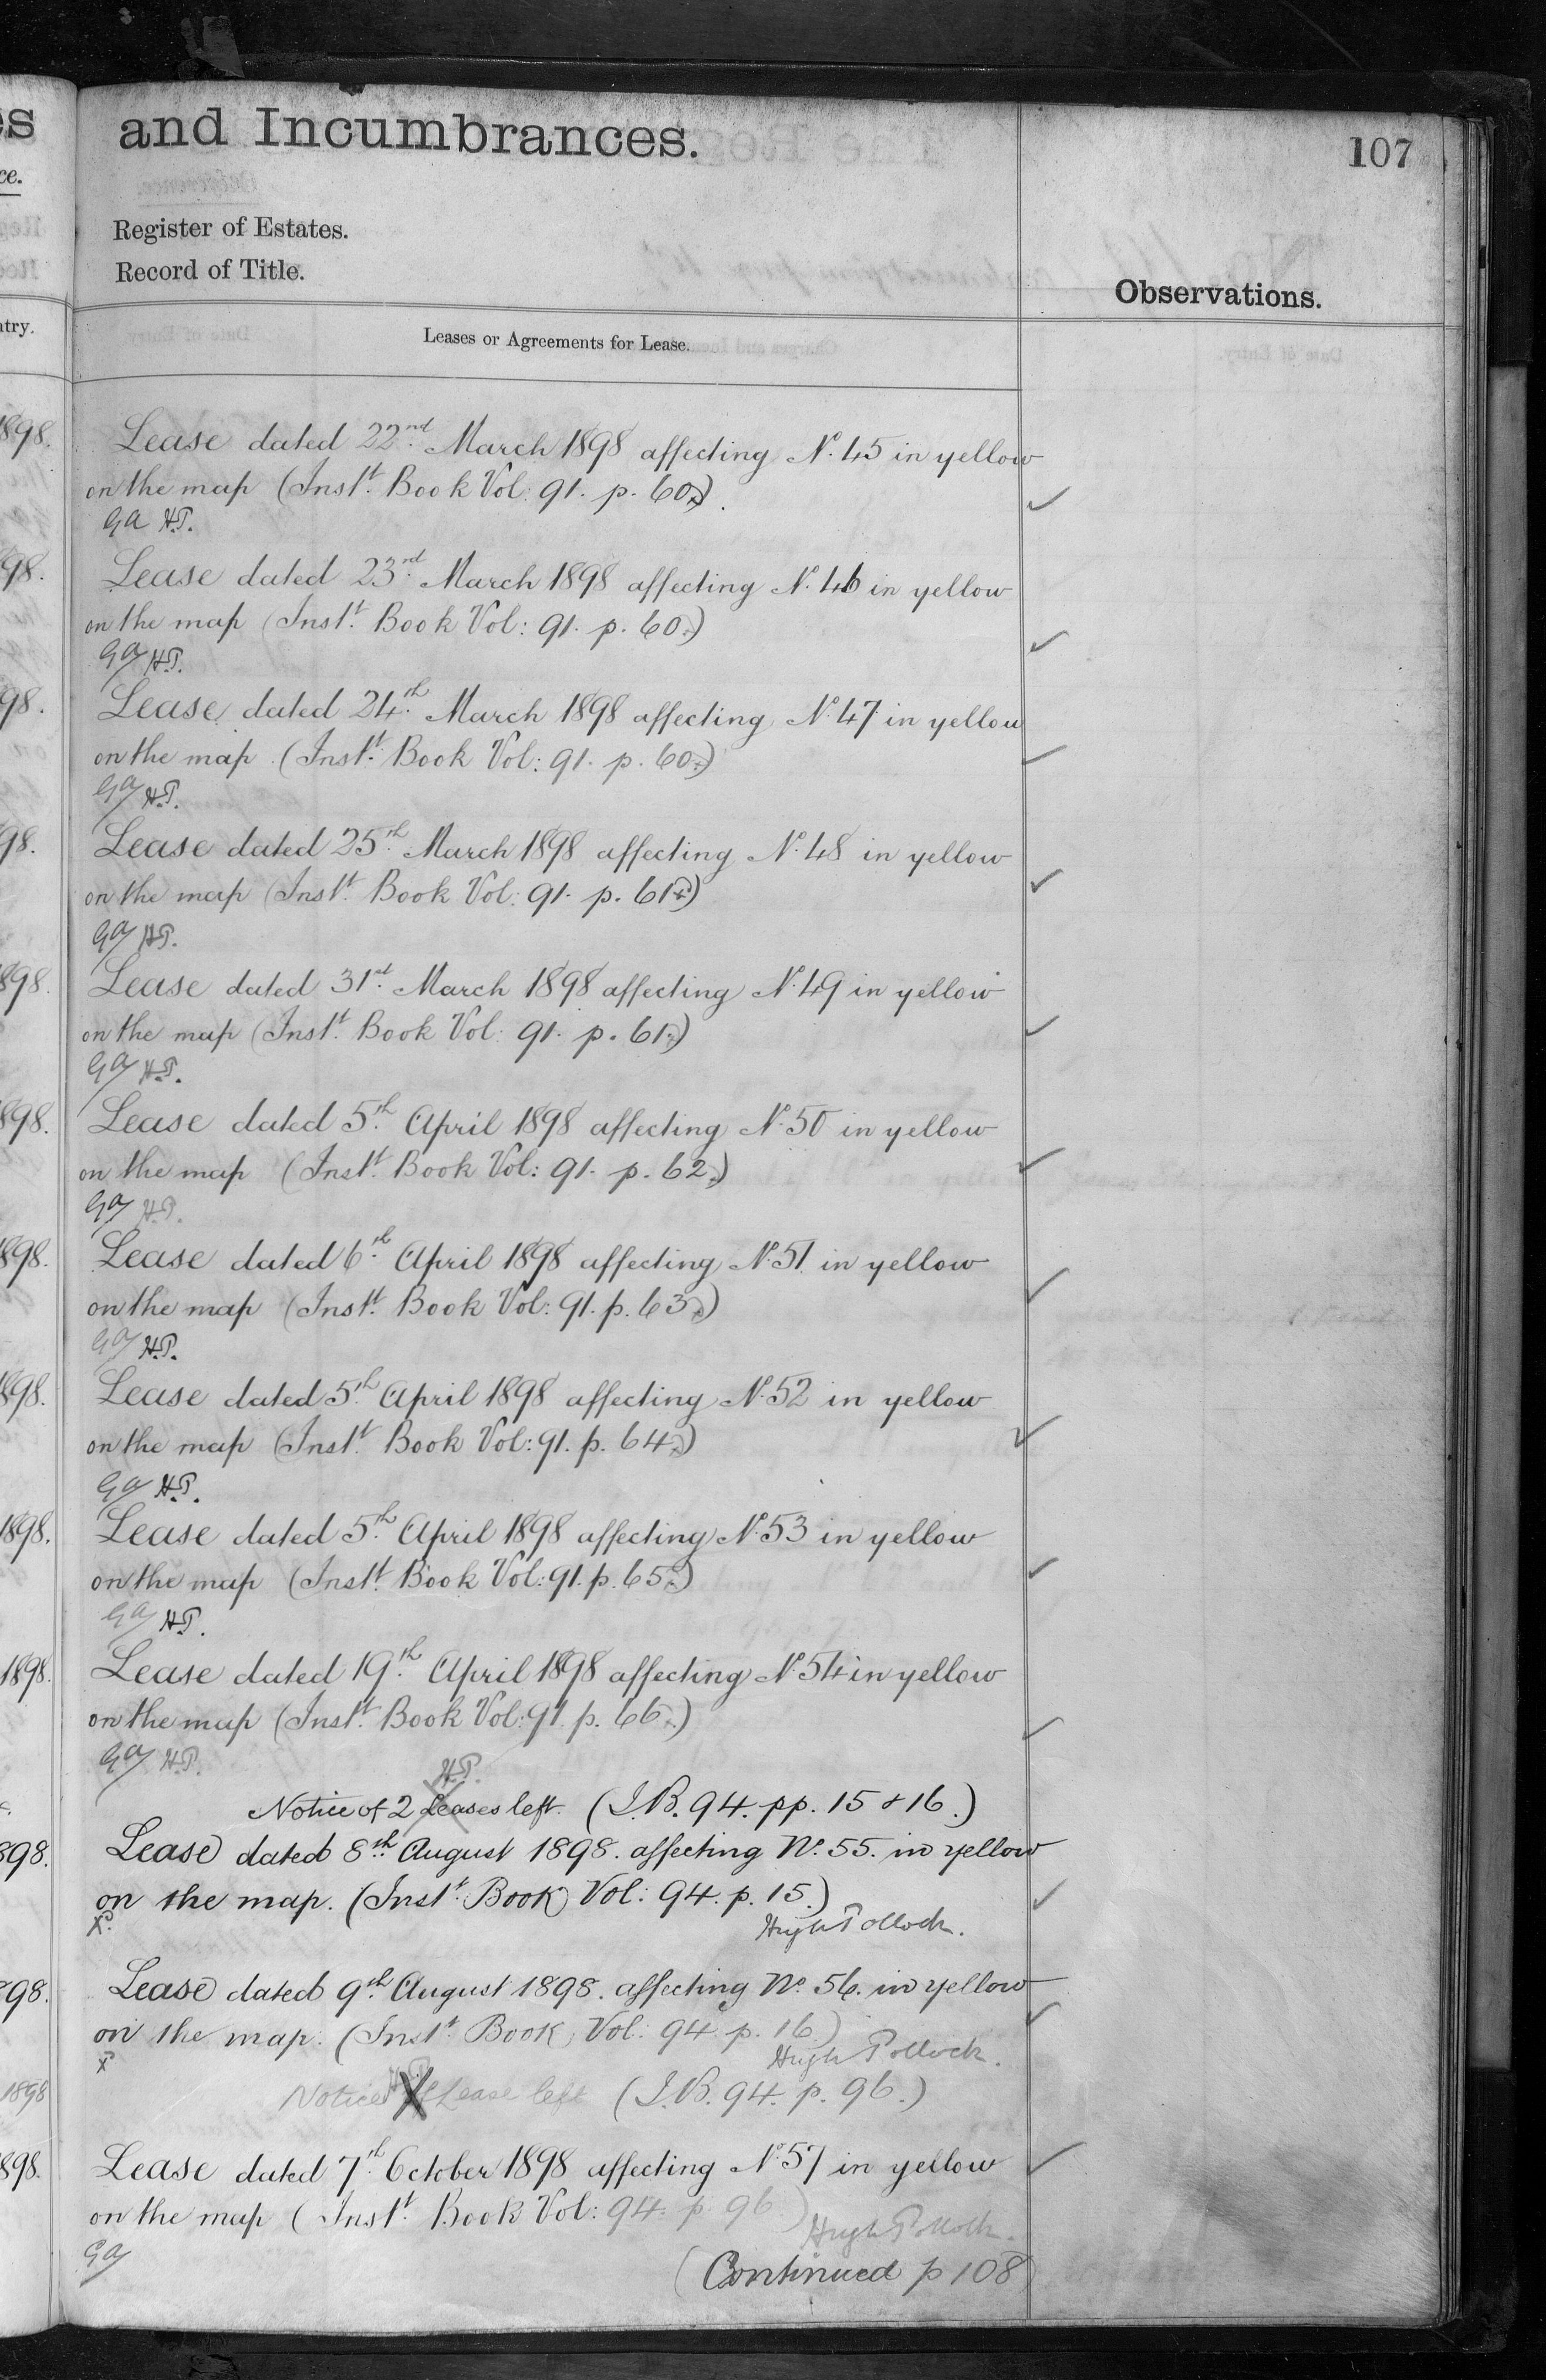 and Incumbrances.
107
Register of Estates.
Record of Title.
Observations.
Leases or Agreements for Lease.
Lease dated 22nd March 1898 affecting No. 45 in yellow
on the map (Instt. Book Vol: 91. p. 60.)
GA H.P.
Lease dated 23rd March 1898 affecting No. 46 in yellow
on the map (Instt. Book Vol: 91. p. 60.)
GA H.P.
Lease dated 24th March 1898 affecting No. 47 in yellow
on the map (Instt. Book Vol: 91. p. 60.)
GA H.P.
Lease dated 25th March 1898 affecting No. 48 in yellow
on the map (Instt. Book Vol: 91. p. 61.)
GA H.P.
Lease dated 31st March 1898 affecting No. 49 in yellow
on the map (Instt. Book Vol: 91. p. 61.)
GA H.P.
Lease dated 5th April 1898 affecting No. 50 in yellow
on the map (Instt. Book Vol: 91. p. 62.)
GA H.P.
Lease dated 6th April 1898 affecting No. 51 in yellow
on the map (Instt. Book Vol: 91. p. 63.)
GA H.P.
Lease dated 5th April 1898 affecting No. 52 in yellow
on the map (Instt. Book Vol: 91. p. 64.)
GA H.P.
Lease dated 5th April 1898 affecting No. 53 in yellow
on the map (Instt. Book Vol: 91. p. 65.)
GA H.P.
Lease dated 19th April 1898 affecting No. 54 in yellow
on the map (Instt. Book Vol: 91 p. 66.)
GA H.P.
H.P.
Notice of 2 Leases left. (I.B. 94. pp. 15 & 16.)
Lease dated 8th August 1898. affecting No. 55. in yellow
on the map. (Instt. Book Vol: 94. p. 15.)
Hugh Pollock.
Lease dated 9th August 1898. affecting No. 56. in yellow
on the map. (Instt. Book Vol: 94 p. 16.)
Hugh Pollock.
Notice of Lease left (I.B. 94. p. 96.)
Lease dated 7th October 1898 affecting No. 57 in yellow
on the map (Instt. Book Vol: 94. p. 96)
Hugh Pollock.
GA
(Continued p 108)